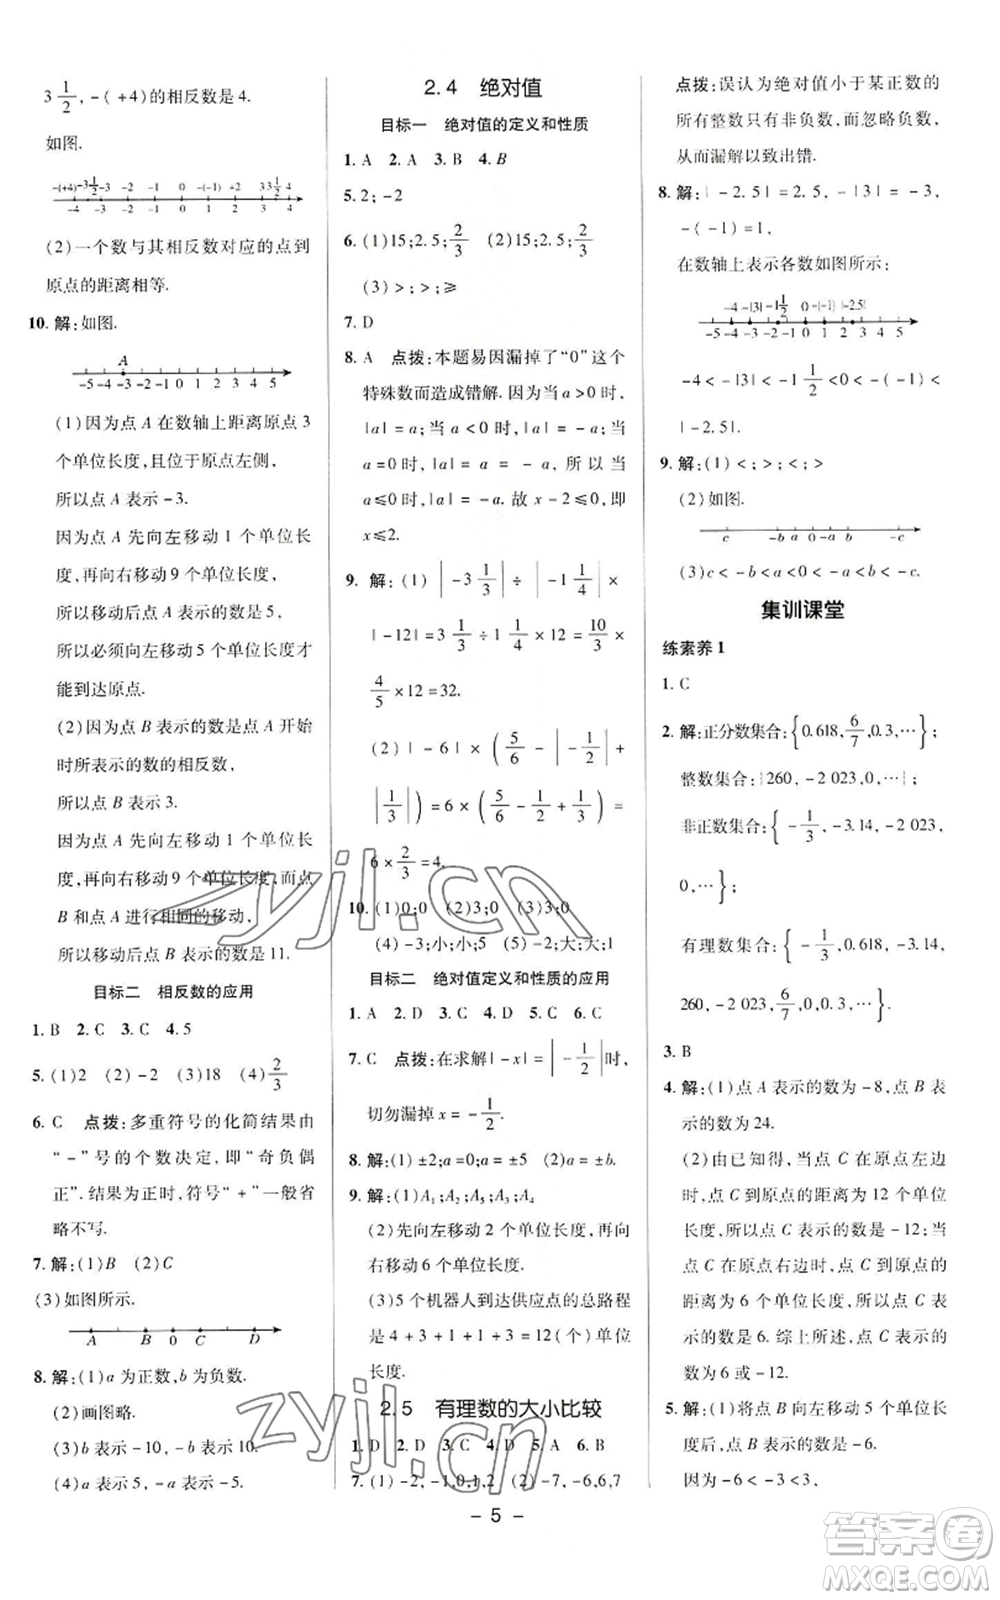 3 1/2, -(+4)的相反数是4.
如图.
-(+4) -3 1/2 -3 -2 -1 0 -(-1) +2 3 3 1/2 4
-4 -3 -2 -1 0 1 2 3 4
(2)一个数与其相反数对应的点到
原点的距离相等.
10. 解:如图.
A
-5 -4 -3 -2 -1 0 1 2 3 4 5
(1)因为点 A 在数轴上距离原点 3
个单位长度,且位于原点左侧,
所以点 A 表示 -3.
因为点 A 先向左移动 1 个单位长
度,再向右移动 9 个单位长度,
所以移动后点 A 表示的数是 5,
所以必须向左移动 5 个单位长度才
能到达原点.
(2)因为点 B 表示的数是点 A 开始
时所表示的数的相反数,
所以点 B 表示 3.
因为点 A 先向左移动 1 个单位长
度,再向右移动 9 个单位长度,而点
B 和点 A 进行相同的移动,
所以移动后点 B 表示的数是 11.
目标二 相反数的应用
1. B 2. C 3. C 4. 5
5. (1)2 (2)-2 (3)18 (4)2/3
6. C 点拨:多重符号的化简结果由
“-”号的个数决定,即“奇负偶
正”.结果为正时,符号“+”一般省
略不写.
7. 解:(1)B (2)C
(3)如图所示.
A B 0 C D
8. 解:(1)a 为正数,b 为负数.
(2)画图略.
(3)b 表示 -10, -b 表示 10.
(4)a 表示 5, -a 表示 -5.
2.4 绝对值
目标一 绝对值的定义和性质
1. A 2. A 3. B 4. B
5. 2; -2
6. (1)15;2.5;2/3 (2)15;2.5;2/3
(3)>;>;≥
7. D
8. A 点拨:本题易因漏掉了“0”这个
特殊数而造成错解.因为当 a>0 时,
|a|=a;当 a<0 时,|a|=-a;当
a=0 时,|a|=a=-a,所以当
a≤0 时,|a|=-a.故 x-2≤0,即
x≤2.
9. 解:(1) |-3 1/3| ÷ |-1 1/4| ×
|-12|=3 1/3÷1 1/4×12=10/3×
4/5×12=32.
(2)|-6|×(5/6-|-1/2|+
|1/3|)=6×(5/6-1/2+1/3)=
6×2/3=4.
10. (1)0;0 (2)3;0 (3)3;0
(4)-3;小;小;5 (5)-2;大;大;1
目标二 绝对值定义和性质的应用
1. A 2. D 3. D 4. C 5. C 6. C
7. C 点拨:在求解|-x|=|-1/2|时,
切勿漏掉 x=-1/2.
8. 解:(1)±2;a=0;a=±5 (2)a=b.
9. 解:(1)A₁;A₂;A₅;A₄
(2)先向左移动 2 个单位长度,再向
右移动 6 个单位长度.
(3)5 个机器人到达供应点的总路程
是 4+3+1+1+3=12(个)单位
长度.
2.5 有理数的大小比较
1. D 2. D 3. C 4. D 5. A 6. B
7. (1)-2,-1,0,1,2 (2)-7,-6,6,7
点拨:误认为绝对值小于某正数的
所有整数只有非负数,而忽略负数,
从而漏解以致出错.
8. 解:|-2.5|=2.5,-|3|=-3,
-(-1)=1,
在数轴上表示各数如图所示:
-4 -|3| -1 1/2 0 -(-1) |-2.5|
-5 -4 -3 -2 -1 0 1 2 3 4 5
-4<-|3|<-1 1/2<0<-(-1)<
|-2.5|.
9. 解:(1)<;>;<;>
(2)如图.
c -b a 0 -a b -c
(3)c<-b<a<0<-a<b<-c.
集训课堂
练素养 1
1. C
2. 解:正分数集合:{0.618,6/7,0.3,…};
整数集合:{260,-2 023,0,…};
非正数集合:{-1/3,-3.14,-2 023,
0,…};
有理数集合:{-1/3,0.618,-3.14,
260,-2 023,6/7,0,0.3,…}.
3. B
4. 解:(1)点 A 表示的数为 -8,点 B 表
示的数为 24.
(2)由已知得,当点 C 在原点左边
时,点 C 到原点的距离为 12 个单位
长度,所以点 C 表示的数是 -12;当
点 C 在原点右边时,点 C 到原点的
距离为 6 个单位长度,所以点 C 表
示的数是 6.综上所述,点 C 表示的
数为 6 或 -12.
5. 解:(1)将点 B 向左移动 5 个单位长
度后,点 B 表示的数是 -6.
因为 -6<-3<3,
- 5 -
zyjl.cn
zyjl.cn
答案圈
MXQE.COM